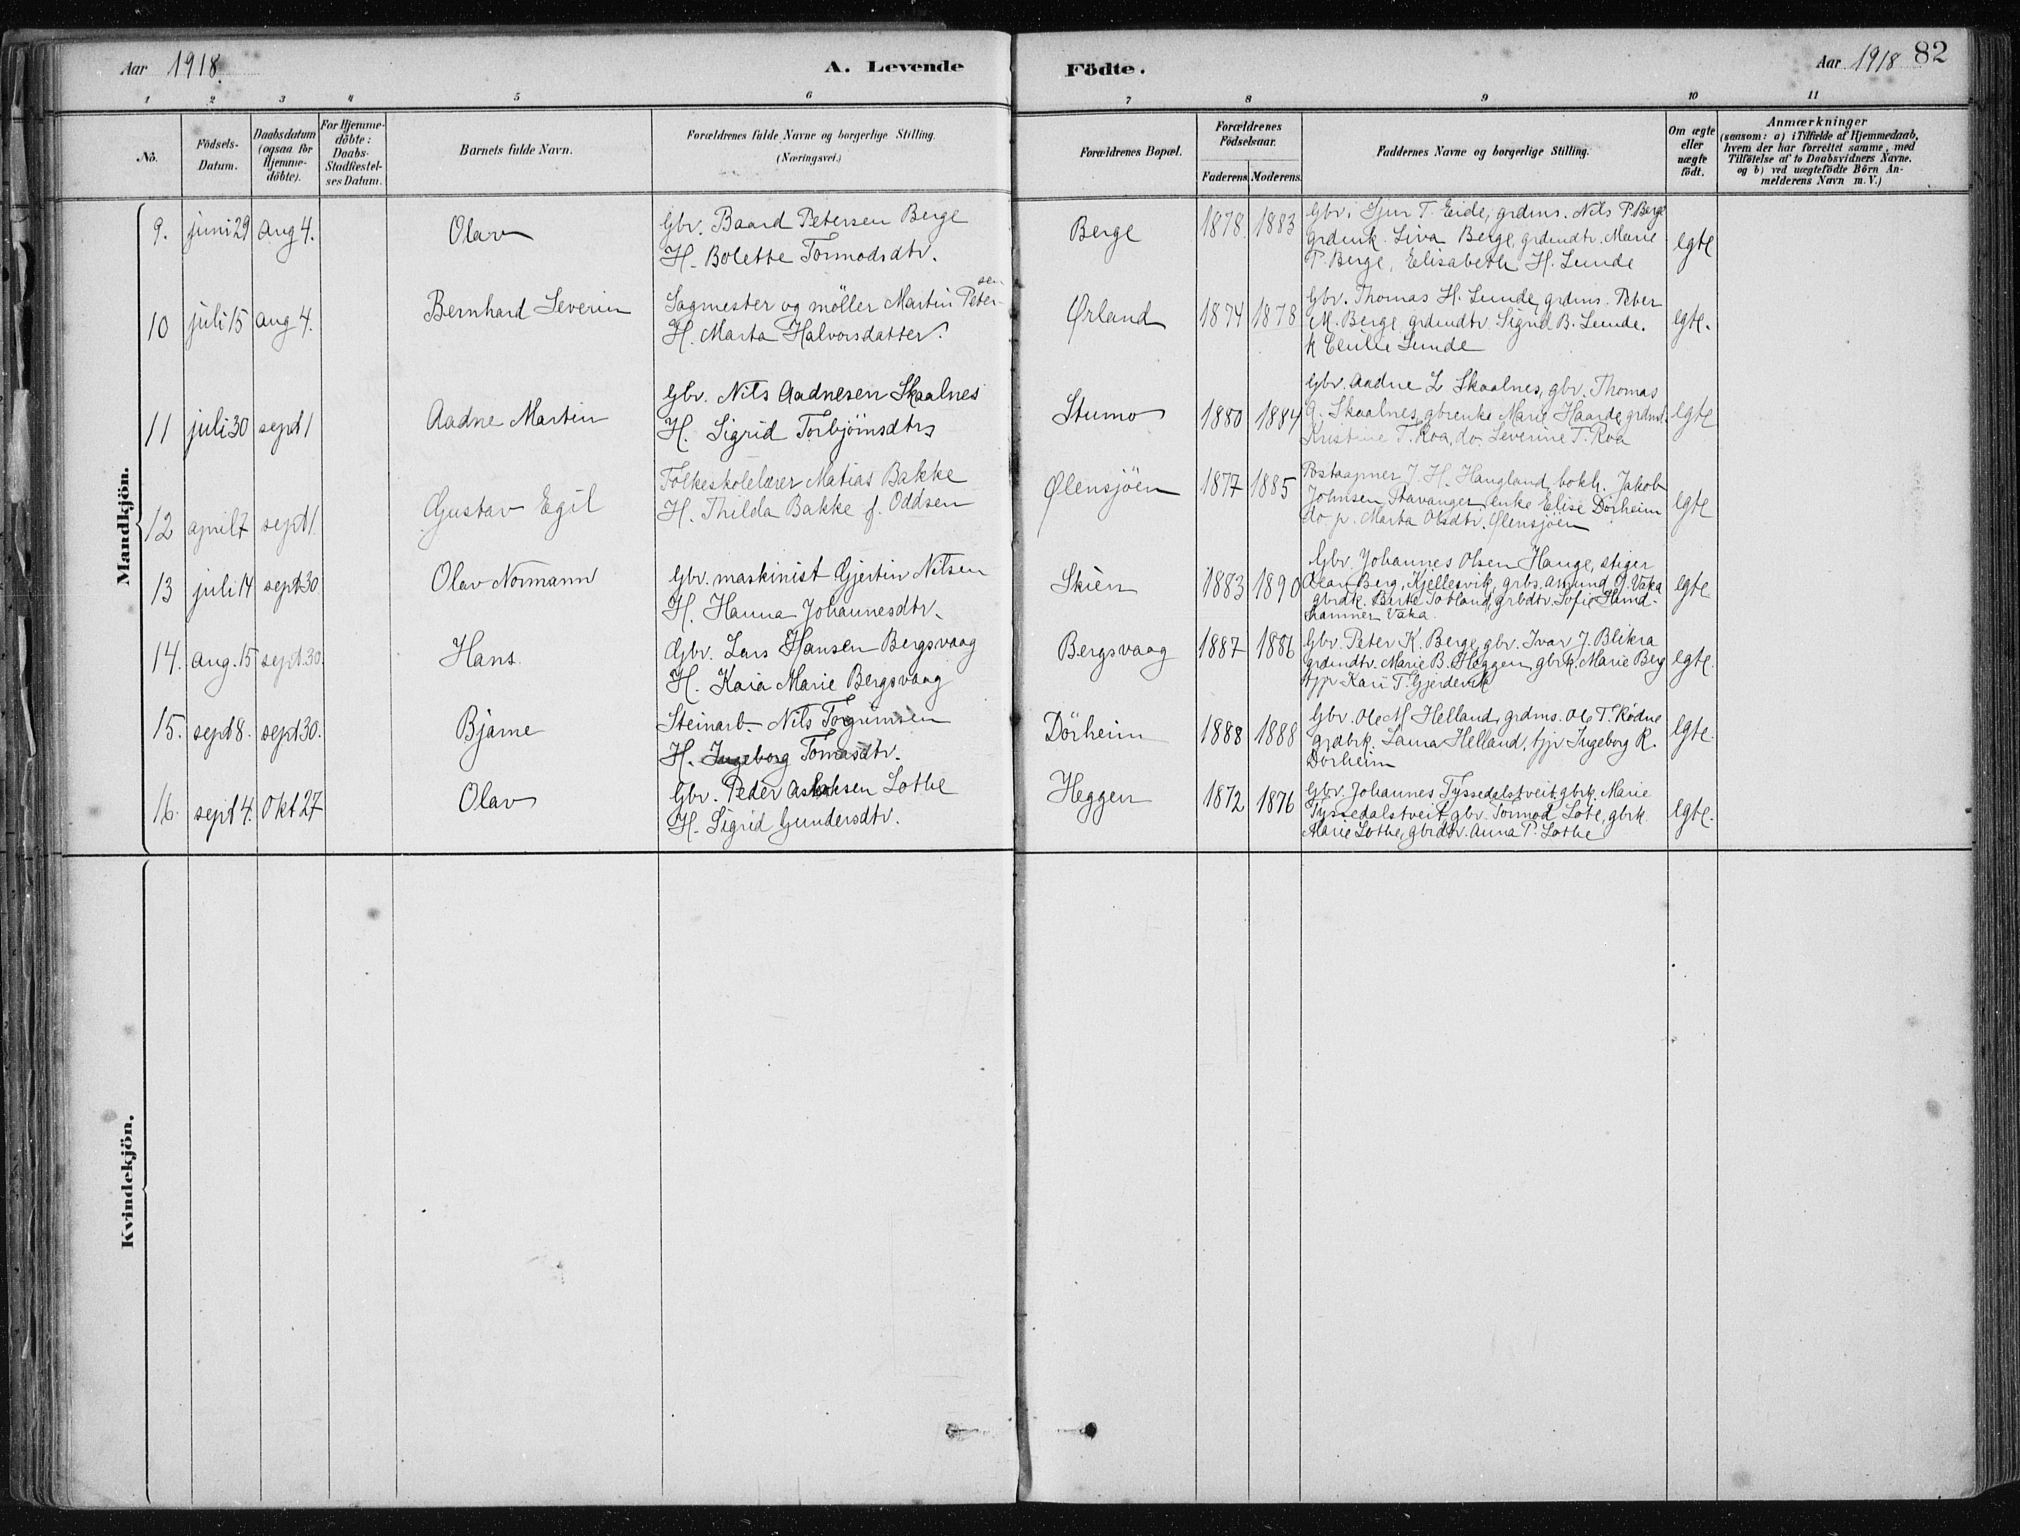 Aar 1918.
A. Levende
Födte.
Aar 1918
82
1 2 3 4 5 6 7 8 9 10 11
No.
Födsels-
Datum.
Daabsdatum
(ogsaa for
Hjemme-
döbte).
For Hjemme-
döbte:
Daabs-
Stadfæstel-
ses Datum.
Barnets fulde Navn.
Forældrenes fulde Navne og borgerlige Stilling.
(Næringsvei.)
Forældrenes Bopæl.
Forældrenes
Födselsaar.
Faderens. Moderens.
Faddernes Navne og borgerlige Stilling.
Om ægte
eller
uægte
födt.
Anmærkninger
(saasom: a) i Tilfælde af Hjemmedaab,
hvem der har forrettet samme, med
Tilföielse af to Daabsvidners Navne.
og b) ved uægtefödte Börn An-
melderens Navn m. V.)
Mandkjön.
9. juni 29 aug 4.
Olav
Gbr. Baard Petersen Berge
H. Bolette Tormodsdtr.
Berge
1878. 1883
Gbr. Sjur T. Eide, grdms. Nils P. Berge
grdenk. Siva Berge, grdmdtr. Marie
P. Berge, Elisabeth H. Lunde
egte
10 juli 15 aug 4.
Bernhard Severin
Sagmester og möller Martin Peter-
sen
H. Marta Halvorsdatter.
Ørland
1874 1878
Gbr. Thomas H. Lunde, grdms. Peter
M. Berge, grdmdtr. Sigrid B. Lunde.
k Cecilie Lunde
egte.
11 juli 30 sept 1
Aadne Martin
Gbr. Nils Aadnesen Skaalnes
H. Sigrid Torbjörnsdtr
Stumo
1880 1884
Gbr. Aadne L Skaalnes, gbr. Thomas
A. Skaalnes, gbrenke Marie Haarde, grdmd.
Kristine T. Roa, do. Severine T. Roa
egte
12 april 7 sept 1.
Gustav Egil
Folkeskolelærer Matias Bakke
H. Thilda Bakke f. Oddsen
Ølensjöen
1877 1885
Postaapner J. H. Haugland, bokh. Jakob
Johnsen Stavanger, enke Elise Dörheim
do p. Marta Olsdtr. Ølensjöen
egte
13 juli 14 sept 30
Olav Normann
Gbr. maskinist Gjertin Nilsen
H. Hanna Johannesdtr.
Skien
1883 1890
Gbr. Johannes Olsen Hauge, stiger
Olav Berg, Kjellesvik, grbs. Amund O. Vaka
gbrdk. Berte Tobland, grbdtr. Sofie Hand-
hammer Vaka.
egte
14. aug. 15 sept. 30.
Hans.
Gbr. Lars Hansen Bergsvaag
H. Kaia Marie Bergsvaag
Bergsvaag
1887 1886
Gbr. Peter K. Berge, gbr. Ivar J. Blikra
grdmdtr. Marie B. Heggen, gbrk. Marie Berg
tjp Kari T. Gjerdevik
egte.
15. sept 8. sept 30.
Bjarne
Steinarb. Nils Torgrimsen
H. Ingeborg Tomasdtr.
Dörheim
1888 1888
Gbr. Ole M Helland, grdms. Ole T. Rödne
grdbrk. Laura Helland, tjp Ingeborg R.
Dörheim
egte.
16. sept 4. Okt 27
Olav
Gbr. Peder Aslaksen Lothe
H. Sigrid Gundersdtr.
Heggen
1872 1876
Gbr. Johannes Tyssedalstveit, gbrk. Marie
Tyssedalstveit, gbr. Tormod Lote, gbrk.
Marie Lothe, gbrdtr. Anna P. Lothe
egte.
Kvindekjön.